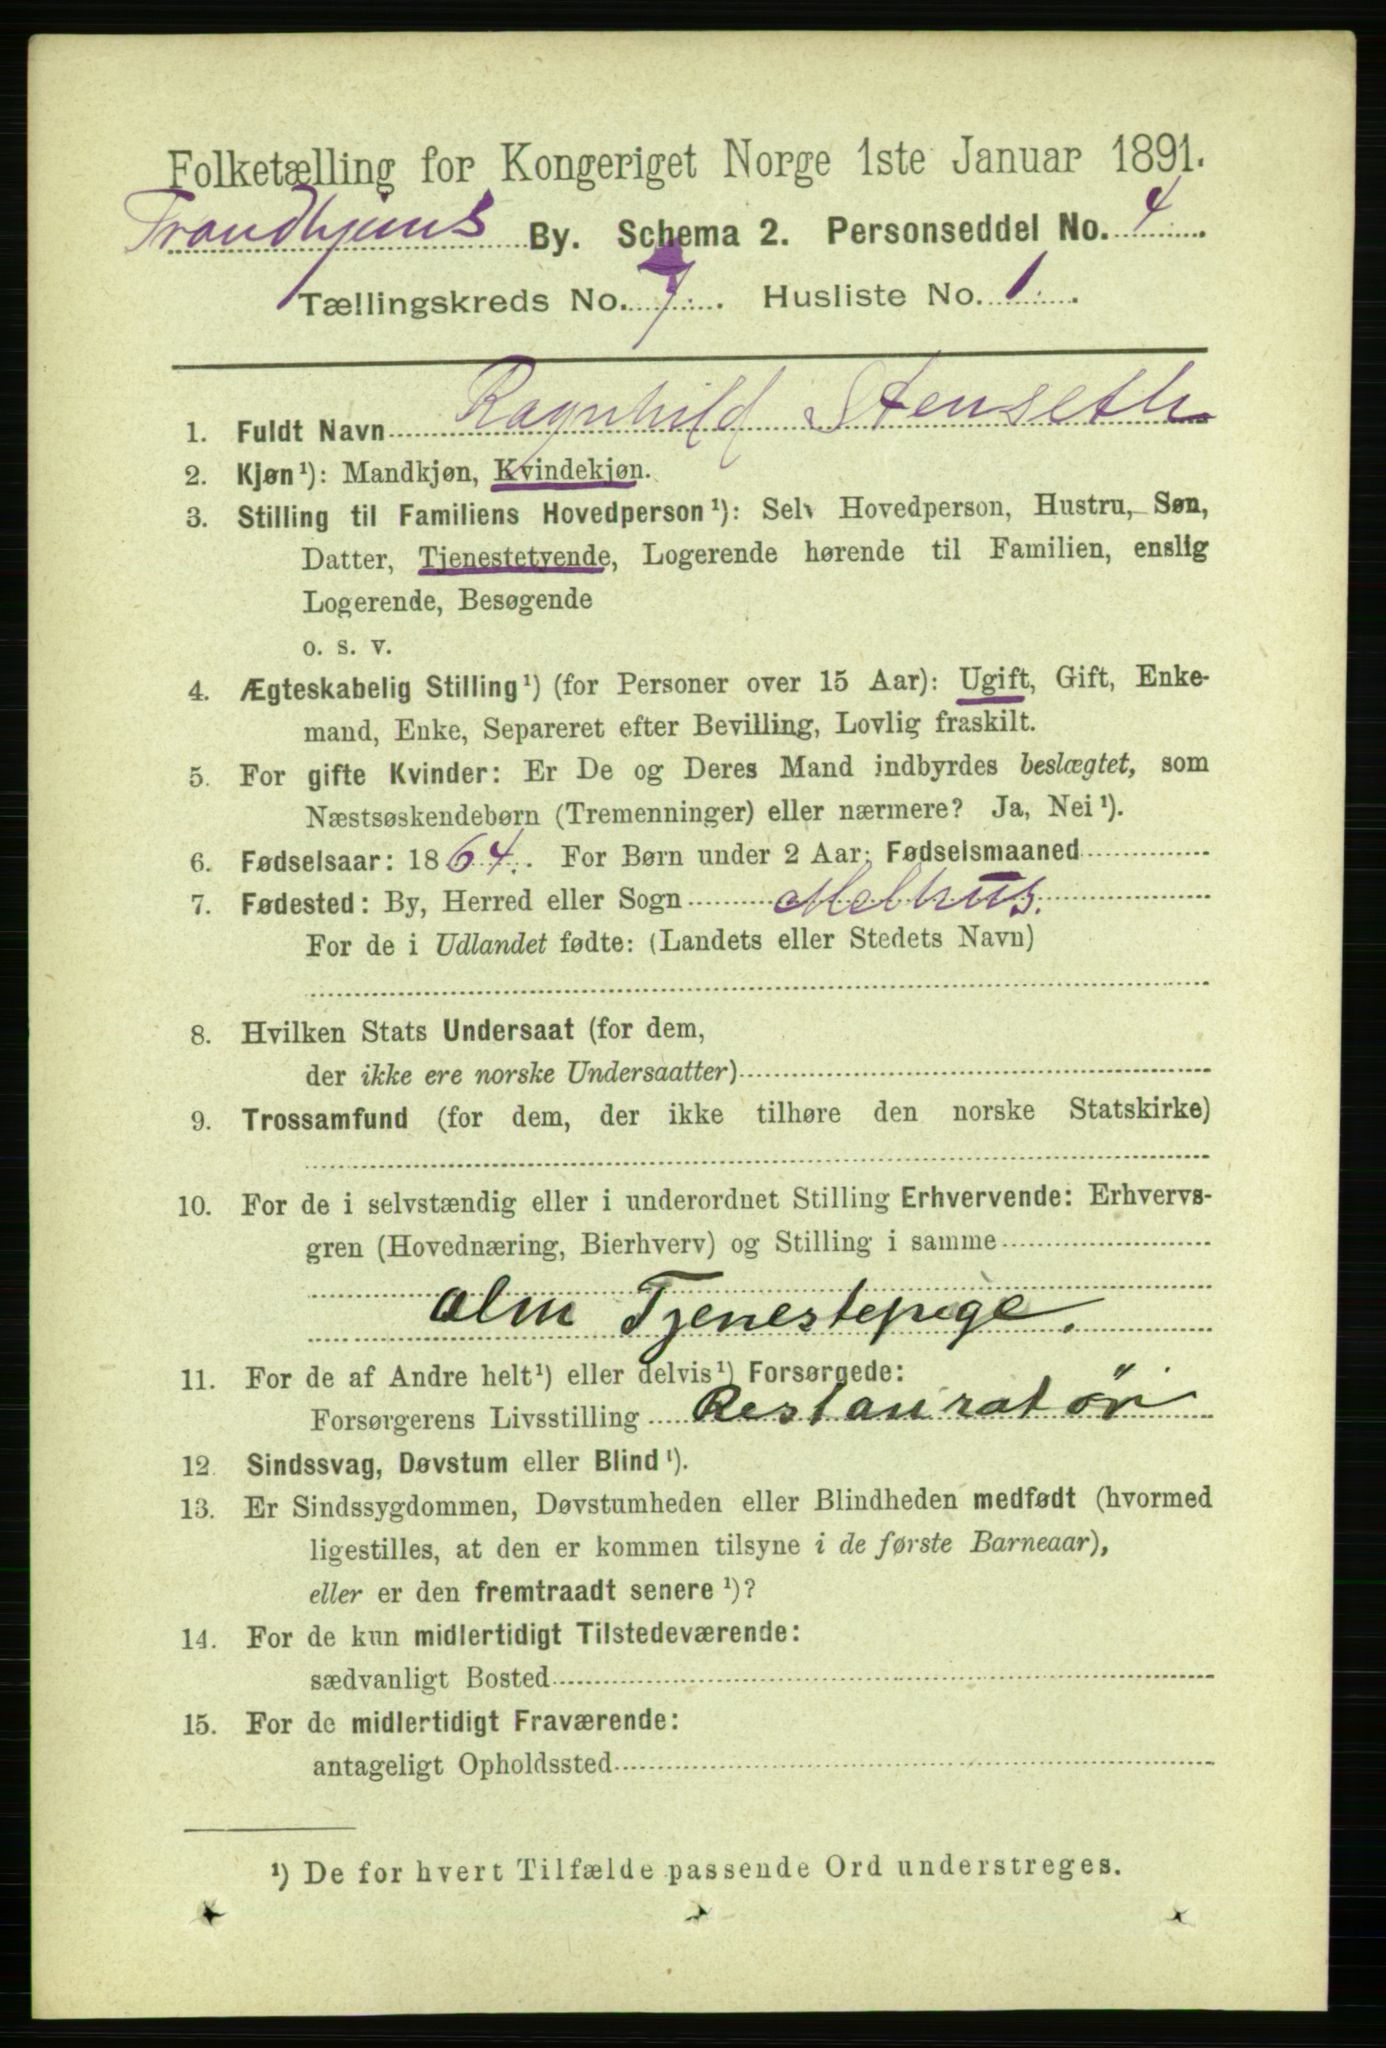 Folketælling for Kongeriget Norge 1ste Januar 1891.
Trondhjems By. Schema 2. Personseddel No. 4
Tællingskreds No. 7. Husliste No. 1.
1. Fuldt Navn Ragnhild Stenseth
2. Kjøn¹): Mandkjøn, Kvindekjøn.
3. Stilling til Familiens Hovedperson¹): Selv Hovedperson, Hustru, Søn,
Datter, Tjenestetyende, Logerende hørende til Familien, enslig
Logerende, Besøgende
o. s. v.
4. Ægteskabelig Stilling¹) (for Personer over 15 Aar): Ugift, Gift, Enke-
mand, Enke, Separeret efter Bevilling, Lovlig fraskilt.
5. For gifte Kvinder: Er De og Deres Mand indbyrdes beslægtet, som
Næstsøskendebørn (Tremenninger) eller nærmere? Ja, Nei¹).
6. Fødselsaar: 1864. For Børn under 2 Aar: Fødselsmaaned
7. Fødested: By, Herred eller Sogn Melhus.
For de i Udlandet fødte: (Landets eller Stedets Navn)
8. Hvilken Stats Undersaat (for dem,
der ikke ere norske Undersaatter)
9. Trossamfund (for dem, der ikke tilhøre den norske Statskirke)
10. For de i selvstændig eller i underordnet Stilling Erhvervende: Erhvervs-
gren (Hovednæring, Bierhverv) og Stilling i samme
alm Tjenestepige.
11. For de af Andre helt¹) eller delvis¹) Forsørgede:
Forsørgerens Livsstilling Restauratør
12. Sindssvag, Døvstum eller Blind¹).
13. Er Sindssygdommen, Døvstumheden eller Blindheden medfødt (hvormed
ligestilles, at den er kommen tilsyne i de første Barneaar),
eller er den fremtraadt senere¹)?
14. For de kun midlertidigt Tilstedeværende:
sædvanligt Bosted
15. For de midlertidigt Fraværende:
antageligt Opholdssted
¹) De for hvert Tilfælde passende Ord understreges.